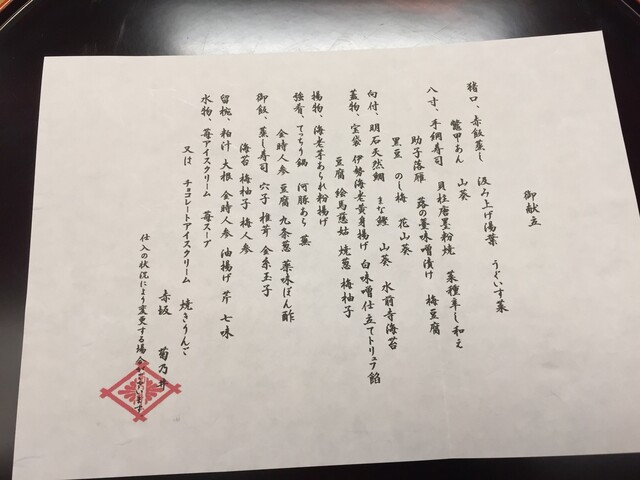 御献立
猪口、赤飯蒸し 汲み上げ湯葉 うぐいす菜
鼈甲あん 山葵
八寸、手綱寿司 貝柱唐墨粉焼 菜種辛し和え
助子落雁 蕗の薹味噌漬け 梅豆腐
黒豆 のし梅 花山葵
向付、明石天然鯛 まな鰹 山葵 水前寺海苔
蓋物、宝袋 伊勢海老黄身揚げ 白味噌仕立てトリュフ餡
豆腐 絵馬慈姑 焼葱 梅柚子
揚物、海老芋あられ粉揚げ
強肴、てっちり鍋 河豚あら 蕪
金時人参 豆腐 九条葱 薬味ぽん酢
御飯、蒸し寿司 穴子 椎茸 金糸玉子
海苔 梅柚子 梅人参
留椀、粕汁 大根 金時人参 油揚げ 芹 七味
水物、苺アイスクリーム 苺スープ
又は チョコレートアイスクリーム 焼きりんご
赤坂 菊乃井
仕入の状況により変更する場合がございます